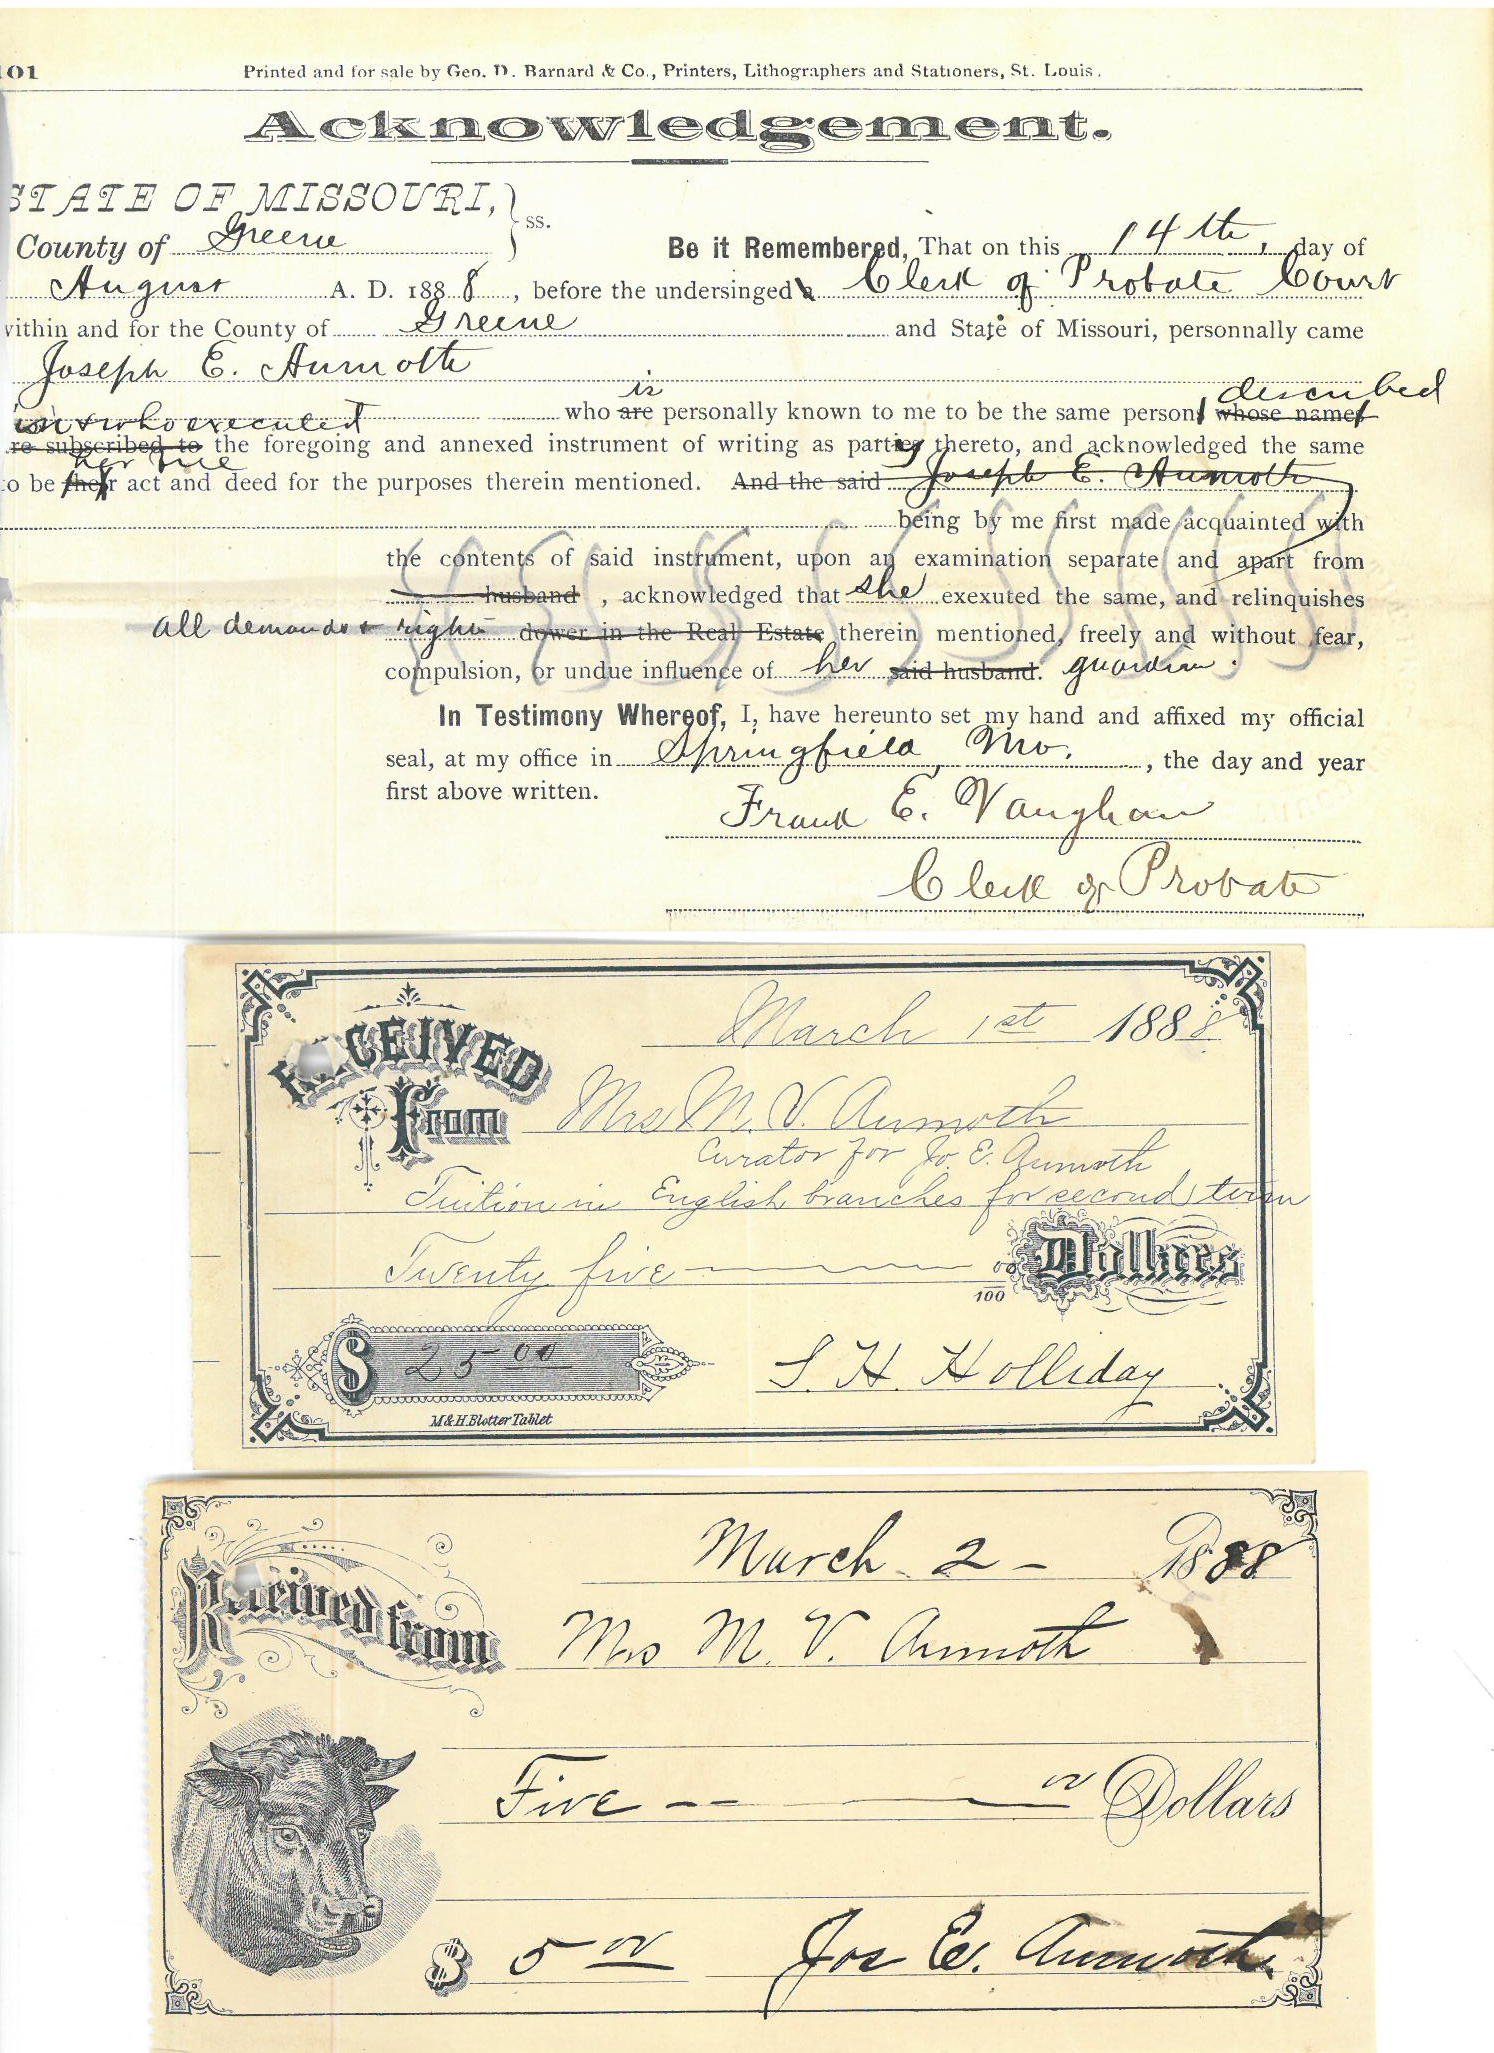 101
Printed and for sale by Geo. D. Barnard & Co., Printers, Lithographers and Stationers, St. Louis.
Acknowledgement.
STATE OF MISSOURI,
ss.
County of Greene
Be it Remembered, That on this 14th, day of
August A. D. 1888, before the undersinged Clerk of Probate Court
within and for the County of Greene and State of Missouri, personnally came
Joseph E. Aumoth
is described
who are personally known to me to be the same persons whose names
who executed
re subscribed to the foregoing and annexed instrument of writing as party thereto, and acknowledged the same
her free
to be their act and deed for the purposes therein mentioned. And the said Joseph E. Aumoth
being by me first made acquainted with
the contents of said instrument, upon an examination separate and apart from
husband, acknowledged that she exexuted the same, and relinquishes
all demands & right dower in the Real Estate therein mentioned, freely and without fear,
compulsion, or undue influence of her said husband. guardian.
In Testimony Whereof, I, have hereunto set my hand and affixed my official
seal, at my office in Springfield, Mo., the day and year
first above written.
Frank E. Vaughan
Clerk of Probate
RECEIVED From
March 1st 1888
Mrs M. V. Aumoth
Curator for Jo. E. Aumoth
Tuition in English branches for second term
Twenty five 00/100 Dollars
$ 25 00
S. H. Holliday
M & H. Blotter Tablet
Received from
March 2 - 1888
Mrs M. V. Aumoth
Five 00 Dollars
$ 5 00
Jos E. Aumoth.